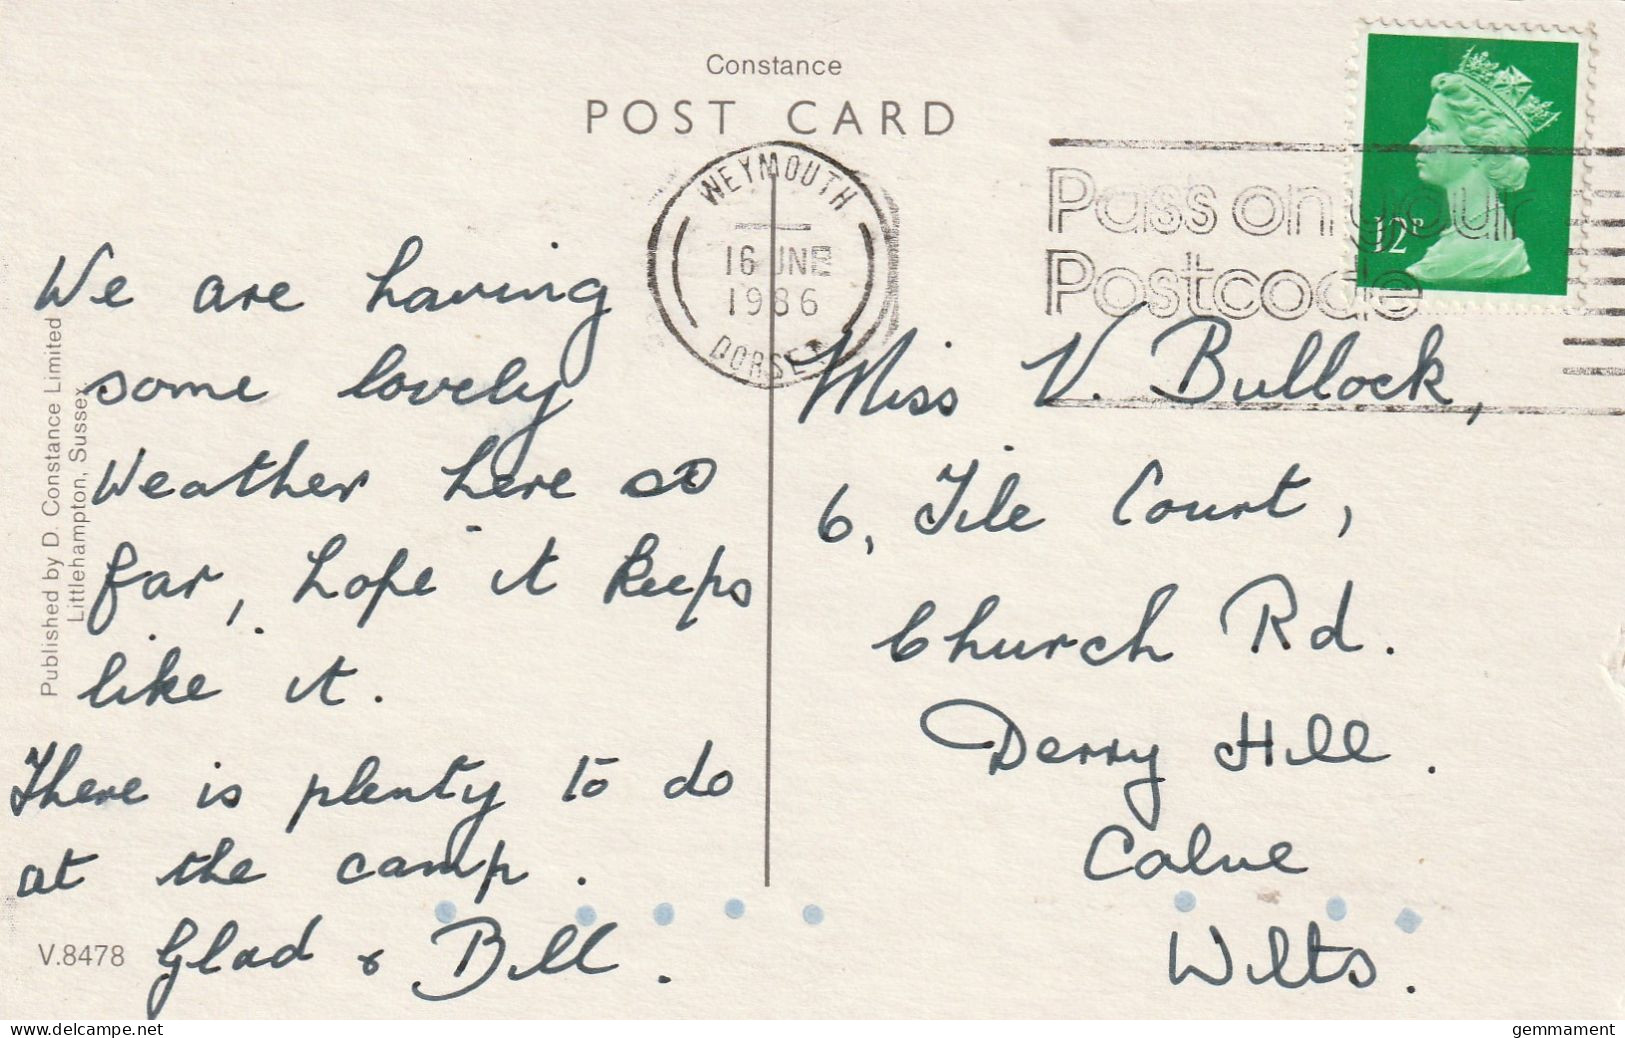 Constance
POST CARD
WEYMOUTH
16 JNE
1986
DORSET
Pass on your
Postcode
12P
We are having
some lovely
weather here so
far, hope it keeps
like it.
There is plenty to do
at the camp.
Glad & Bill.
Miss V. Bullock,
6, Tile Court,
Church Rd.
Derry Hill.
Calne
Wilts.
Published by D. Constance Limited
Littlehampton, Sussex
V.8478
delcampe.net
gemmament